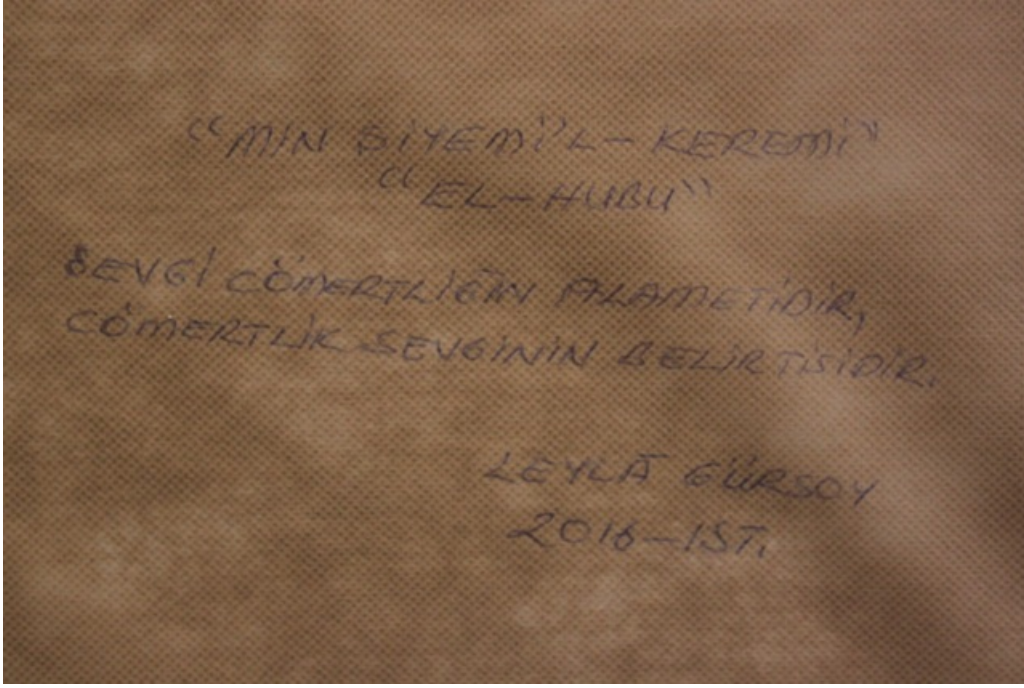 "MİN SİYEMİ'L-KEREMİ"
"EL-HUBU"
SEVGİ CÖMERTLİĞİN ALAMETİDİR,
CÖMERTLİK SEVGİNİN BELİRTİSİDİR.
LEYLÂ GÜRSOY
2016-IST.